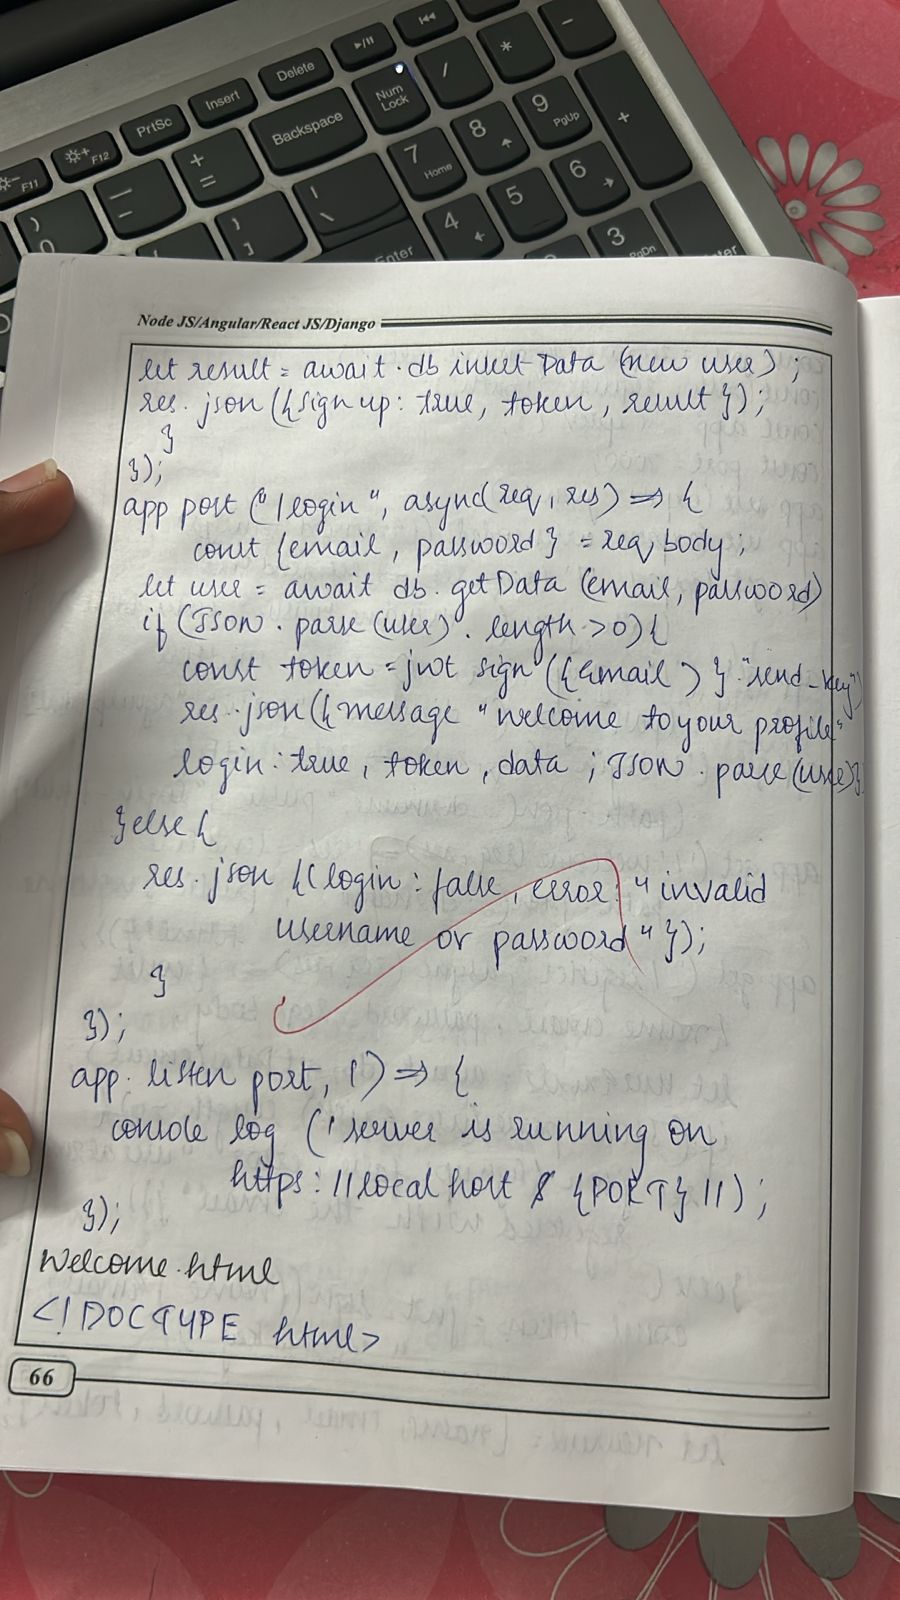 Delete
Insert
PrtSc
Backspace
Num
Lock
/
*
-
+
7
Home
8
9
PgUp
4
5
6
3
PgDn
F11
F12
Node JS/Angular/React JS/Django
let result = await . db insert Data (new user) ;
res. json ({sign up : true, token, result });
}
});
app post ("/login", async(req, res) => {
const {email, password} = req body ;
let user = await db. getData (email, password)
if (JSON . parse (user) . length >0){
const token = jwt sign ({email ) } "send_key")
res. json({message "welcome to your profile"
login : true, token, data ; JSON . parse (user)}
} else {
res. json {(login : false, error : "invalid
username or password" });
}
});
app. listen port, () => {
console log (' server is running on
https : //local host $ {PORT} //) ;
});
Welcome.html
<!DOCTYPE html>
66